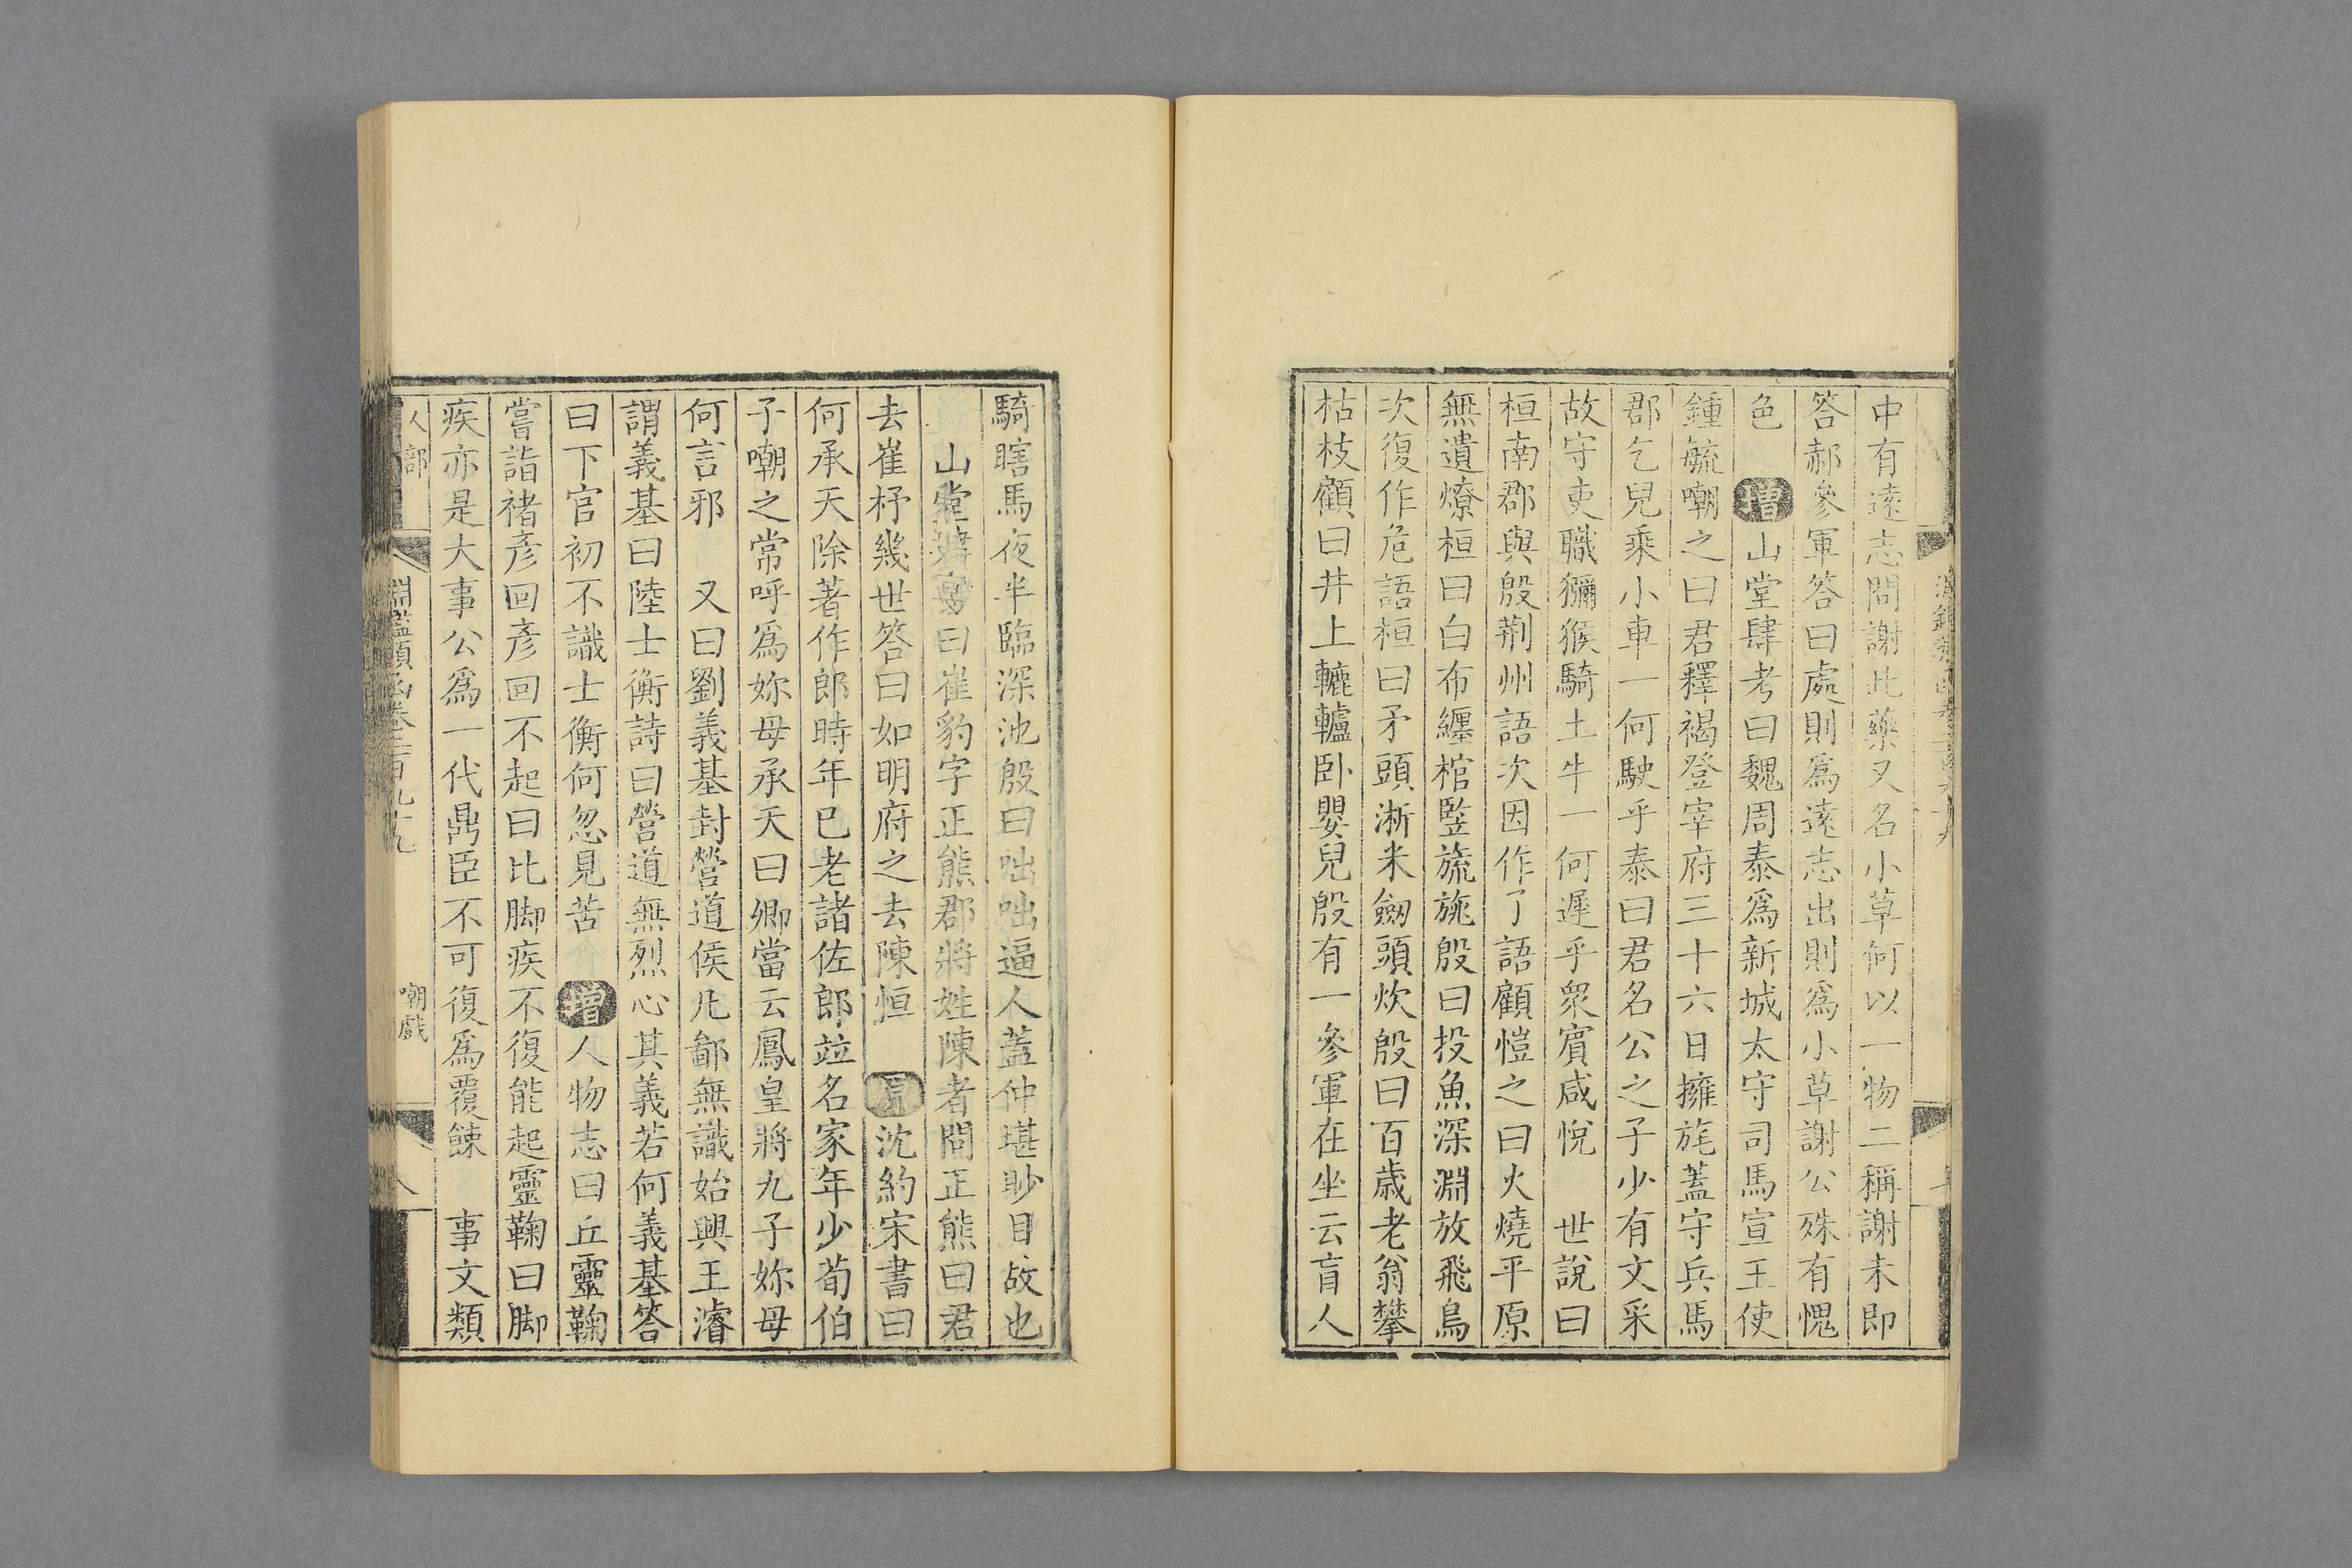 中有遠志問謝此藥又名小草何以一物二稱謝未即
答郝參軍答曰處則爲遠志出則爲小草謝公殊有愧
色 增 山堂肆考曰魏周泰爲新城太守司馬宣王使
鍾毓嘲之曰君釋褐登宰府三十六日擁旄蓋守兵馬
郡乞兒乘小車一何駛乎泰曰君名公之子少有文采
故守吏職獼猴騎土牛一何遲乎衆賓咸悅 世說曰
桓南郡與殷荆州語次因作了語顧愷之曰火燒平原
無遺燎桓曰白布纏棺豎旒旐殷曰投魚深淵放飛鳥
次復作危語桓曰矛頭淅米劒頭炊殷曰百歲老翁攀
枯枝顧曰井上轆轤卧嬰兒殷有一參軍在坐云盲人
騎瞎馬夜半臨深池殷曰咄咄逼人蓋仲堪眇目故也
山堂肆考曰崔豹字正熊郡將姓陳者問正熊曰君
去崔杼幾世答曰如明府之去陳恒 原 沈約宋書曰
何承天除著作郎時年已老諸佐郎竝名家年少荀伯
子嘲之常呼爲妳母承天曰卿當云鳳皇將九子妳母
何言邪 又曰劉義基封營道侯凡鄙無識始興王濬
謂義基曰陸士衡詩曰營道無烈心其義若何義基答
曰下官初不識士衡何忽見苦 增 人物志曰丘靈鞠
嘗詣褚彥回彥回不起曰比脚疾不復能起靈鞠曰脚
疾亦是大事公爲一代鼎臣不可復爲覆餗 事文類
人部 淵鑑類函卷二百九十九 嘲戲 八